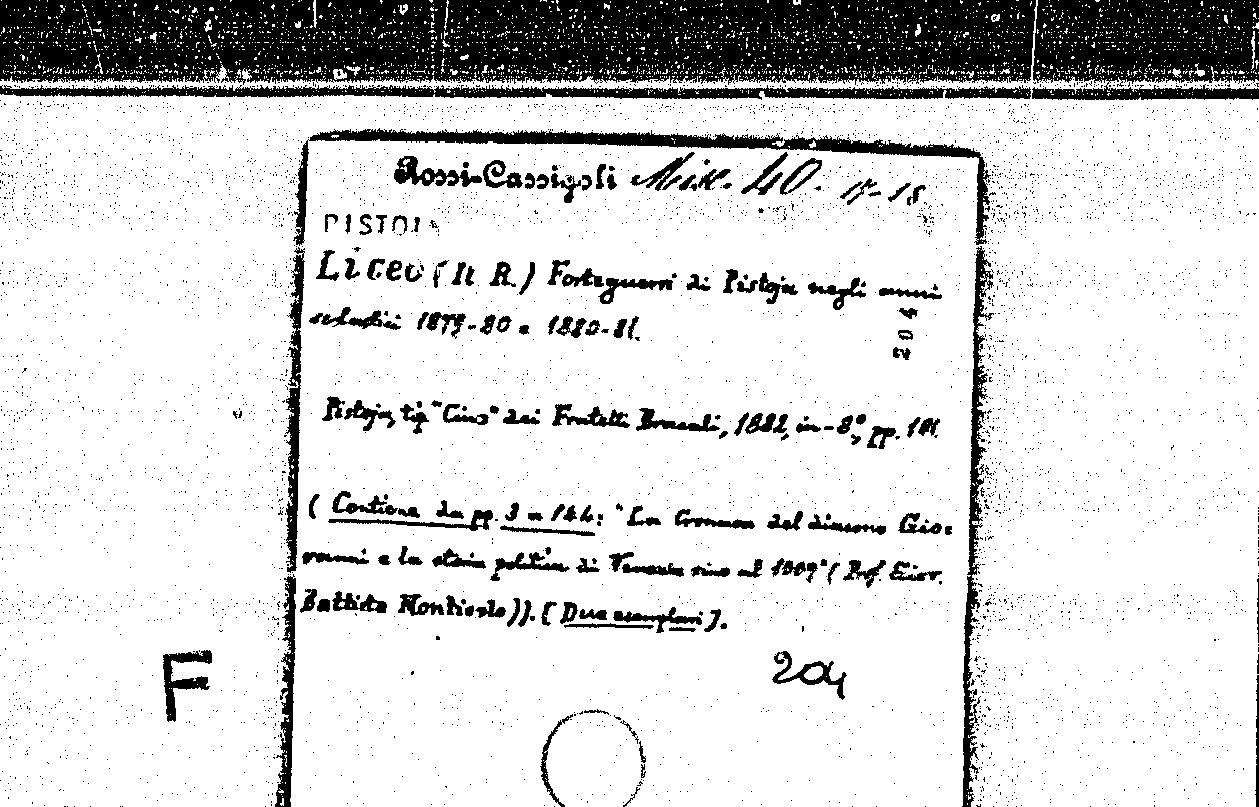 Rossi-Cassigoli Misc. 40. 17-18
PISTOIA
Liceo (Il R.) Forteguerri di Pistoja negli anni
scolastici 1879-80 e 1880-81.
204
Pistoja, tip. "Cino" dei Fratelli Bracali, 1882, in-8º, pp.
(Contiene da pp. 3 a 144: "La Cronaca del diacono Gio=
vanni e la storia politica di Venezia sino al 1009" (Prof. Giov.
Battista Monticolo)). [Due esemplari].
F
204